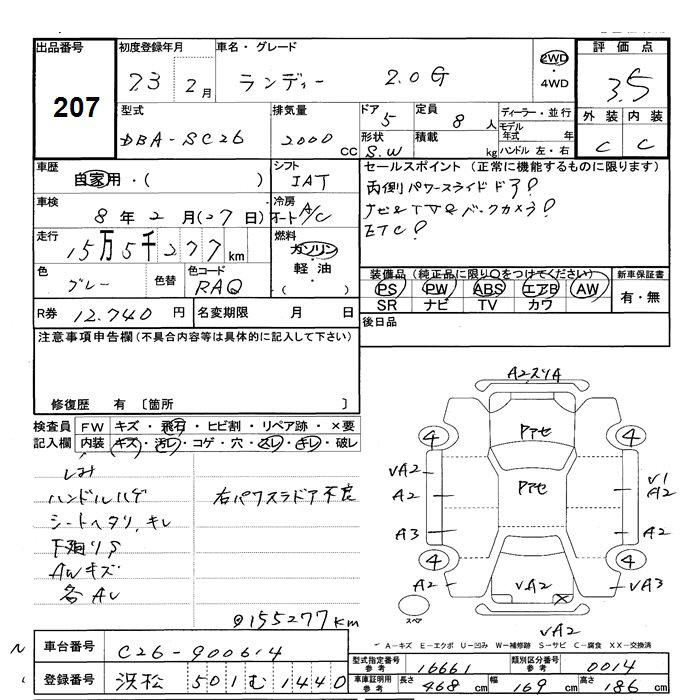 出品番号
207
初度登録年月
23 2月
車名・グレード
ランディー 2.0G
2WD
・4WD
評価点
3.5
外装 内装
C C
型式
DBA-SC26
排気量
2000 CC
ドア 5
形状 S.W
定員 8 人
積載 kg
ディーラー・並行
モデル年式 年
ハンドル 左・右
車歴
自家用・( )
シフト
IAT
車検
8年2月(27日)
冷房
オート A/C
走行
15万5千277km
燃料
ガソリン
・軽油・
( )
色
グレー
色替
色コード
RAQ
R券 12.740円
名変期限 月 日
セールスポイント(正常に機能するものに限ります)
両側パワースライドドア!
ナビ&TV&バックカメラ!
ETC!
装備品(純正品に限り○をつけてください)
PS PW ABS エアB AW
SR ナビ TV カワ
新車保証書
有・無
後日品
注意事項申告欄(不具合内容等は具体的に記入して下さい)
修復歴 有 〔箇所 〕
検査員記入欄
FW キズ・飛石・ヒビ割・リペア跡・×要
内装 キズ・汚レ・コゲ・穴・スレ・キレ・破レ
シミ
ハンドルハゲ
シートヘタリ、キレ
下廻りS
AWキズ
各AU
右パワスラドア不良
@155277km
A2スリA
Pアセ
Pアセ
4 4
4 4
VA2
A2
A3
A2
V1
A2
A2
VA3
VA2
VA2
スペア
A-キズ E-エクボ U-凹み W-補修跡 S-サビ C-腐食 XX-交換済
N
車台番号 C26-900614
登録番号 浜松 501 む 1440
型式指定番号参考 16661
類別区分番号参考 0014
車庫証明用参考 長さ 468cm 幅 169cm 高さ 186cm